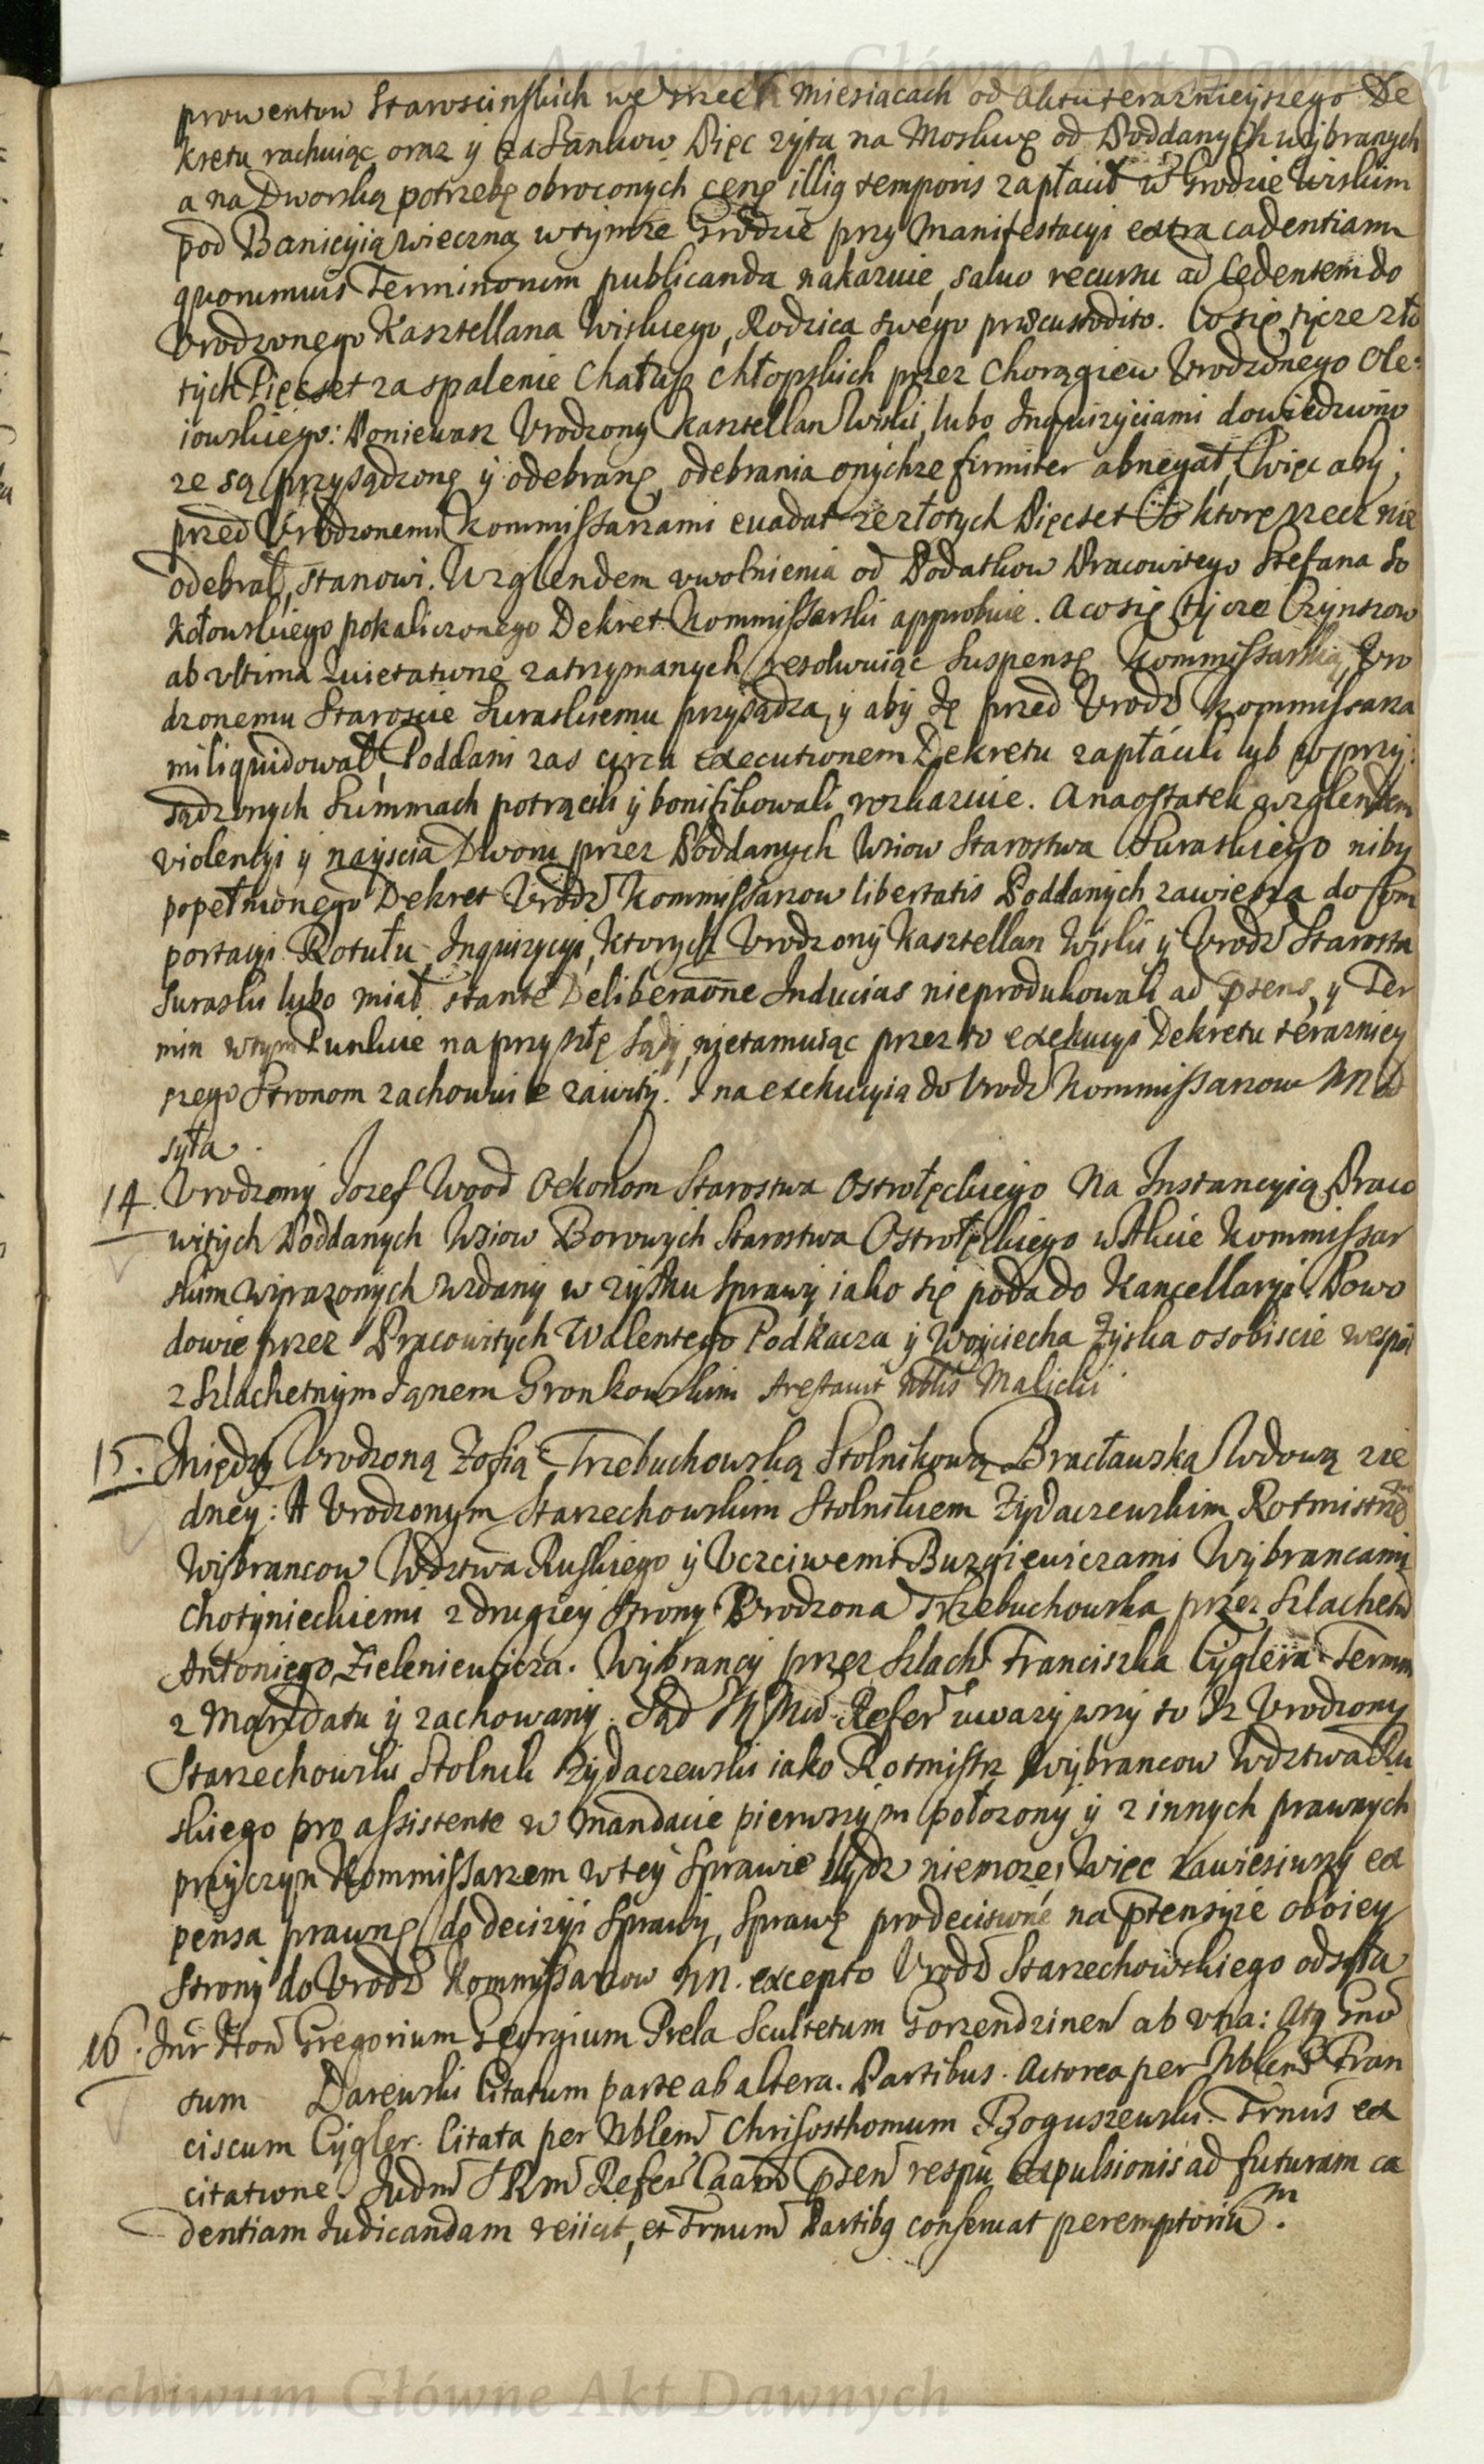 Archiwum Główne Akt Dawnych
prowentow Staroscinskich we trzech Miesiącach od Aktu teraznieyszego De
kretu rachuiąc, oraz y za Sankow Pięc zyta na Moskwę od Poddanych wybranych
a na Dworską potrzebę obroconych cenę illig temporis zapłacił w Grodzie Wiskim
pod Banicyią wieczną wtymze Grodzie przy Manifestacyi extra cadentiam
quorumuis Terminorum publicanda nakazuie, saluo recursu ad Cedentem do
Vrodzonego Kasztellana Wiskiego, Rodzica swego przecustodito. Co się tycze zło
tych Pięcset za spalenie Chałup chłopskich przez Chorągiew Vrodzonego Ole:
iowskiego: Poniewasz Vrodzony Kasztellan Wiski, lubo Inquizyciami dowiedziono
ze są przysądzonę y odebranę, odebrania onychze firmiter abnegat, więc aby
przed Vrodzonemi Kommissarzami euadat ze złotych Pięcset o ktorę rzecz nie
odebrał, stanowi. Wzglendem vwolnienia od Podatkow Pracowitego Stefana So
kołowskiego pokaliczonego Dekret Kommissarski approbuie. A co się tycze Czynszow
ab vltima Quietatione zatrzymanych resolwuiąc Suspensę Kommissarską, Vro
dzonemu Staroscie Suraskiemu przysądza, y aby ię przed Vrodz Kommissarza
mi liquidował, Poddani zas circa executionem Dekretu zapłácili lub w przy:
sądzonych Summach potrącili y bonifikowali, rozkazuie. A naostatek wzglendem
violencyi y nayscia Dworu przez Poddanych Wsiow Starostwa Suraskiego niby
popełnionego Dekret Vrodz Kommissarzow libertatis Poddanych zawiesza do Com
portacyi Rotułu Inquizycyi, ktorych Vrodzony Kasztellan Wiski y Vrodz Starosta
Suraski lubo miał stante Deliberaone Inducias nieprodukowali ad psens, y Ter
min wtym Punkcie na przyszłę Sądy, nietamuiąc przez to exekucyi Dekretu terazniey
szego Stronom zachowuie zawity. I na exekucyią do Vrodz Kommissarzow NN od
syła.
14. Vrodzony Jozef Wood Oekonom Starostwa Ostrołęckiego Na Instancyią Praco
witych Poddanych Wsiow Borowych Starostwa Ostrołęckiego w Akcie Kommissar
skim wyrazonych wzdany w zysku Sprawy iako się poda do Kancellaryi. Powo
dowie przez Pracowitych Walentego Podkacza y Woyciecha Zyska osobiscie wespoł
z Szlachetnym Janem Gronkowskim Arestauit Nblis Malicki
15. Między Vrodzoną Zofią Trzebuchowską Stolnikową Bracławską Wdową zie
dney: A Vrodzonym Starzechowskim Stolnikiem Zydaczewskim Rotmistrzem
Wybrancow Wdztwa Ruskiego y Vczciwemi Buzgiewiczami Wybrancami
Chotynieckiemi z drugiey Strony. Vrodzona Trzebuchowska przez Szlachetn
Antoniego Zieleniewicza. Wybrancy przez Szlach Franciszka Cyglera Termin
z Mandatu y zachowany. Sąd Refer uwazywszy to Iz Vrodzony
Starzechowski Stolnik Zydaczewski iako Rotmistrz Wybrancow Wdztwa Ru
skiego pro assistente w Mandacie pierwszym połozony y z innych prawnych
przyczyn Kommissarzem w tey Sprawie bydz niemoze, Więc zawiesiwszy ex
pensa prawnę do decizyi Sprawy, Sprawę pro decisione na ptensyie oboiey
Strony do Vrodz Kommissarzow NN. excepto Vrodz Starzechowskiego odsyła
16. Intr Hon Gregorium Georgium Prela Scultetum Gorzendzinen ab vna: Atq Gno
sum Darewski Citatum parte ab altera. Partibus. Actorea per Nblem Fran
ciscum Cygler. Citata per Nblem Chrisosthomum Boguszewski. Trnus ex
citatione. Judm SRM Refer Caam psen respu expulsionis ad futuram ca
dentiam Iudicandam reiicit, et Trnum Partibq conseruat peremptorium.
Archiwum Główne Akt Dawnych